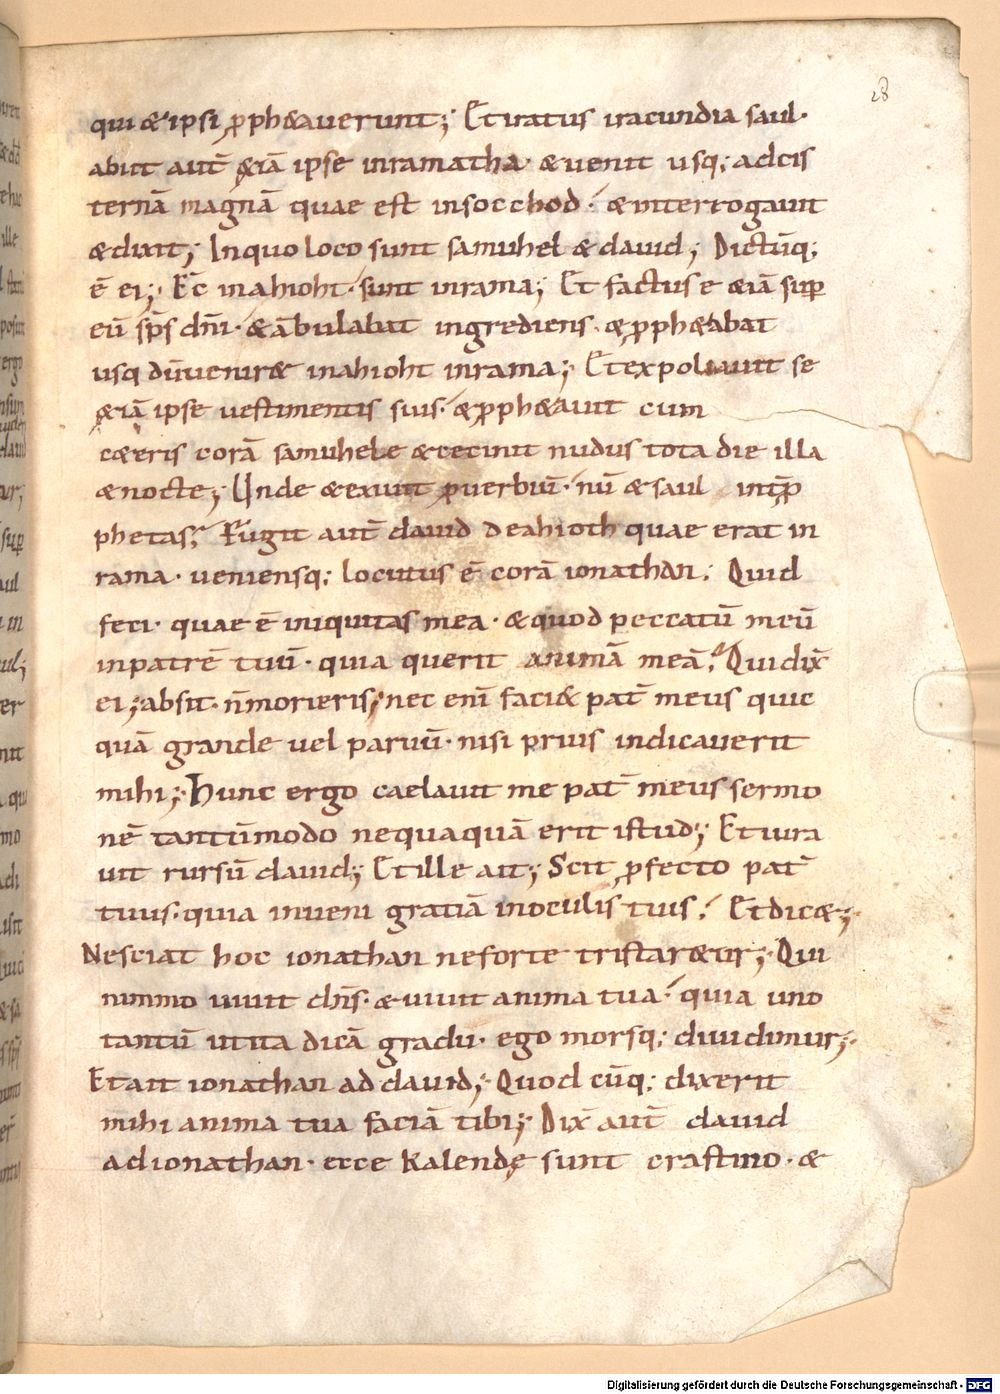 28
qui & ipsi ꝓph&auerunt; Et iratus iracundia saul·
abiit aut̄ &iā ipse inramatha· & uenit usq; adcis
ternā magnā quae est insocchod· & interrogauit
& dixit; Inquo loco sunt samuhel & dauid; Dictūq;
ē ei; Ec̄ inahioht· sunt inrama; Et factus e &iā suꝑ
eū sp̄s dn̄i· & ābulabat ingrediens· & ꝓph&abat
usq dūuenir& inahioht inrama; Et expoliauit se
&iā ipse uestimentis suis· & ꝓph&auit cum
c&eris corā samuhele & cecinit nudus tota die illa
& nocte; Unde & exiuit ꝓuerbiū· nū & saul int̄ ꝓ
phetas; Fugit aut̄ dauid deahioth quae erat in
rama· ueniensq; locutus ē corā ionathan; Quid
feci· quae ē iniquitas mea· & quod peccatū meū
inpatrē tuū· quia querit animā meā; Qui dix̄
ei; absit· n̄ morieris; nec enī faci& pat̄ meus quic
quā grande uel paruū· nisi prius indicauerit
mihi; Hunc ergo caelauit me pat̄ meus sermo
nē tantūmodo nequaquā erit istud; Et iura
uit rursū dauid; Et ille ait; Scit ꝓfecto pat̄
tuus· quia inueni gratiā inoculis tuis; Et dic&;
Nesciat hoc ionathan neforte tristar&ur; Qui
nimmo uiuit dn̄s· & uiuit anima tua· quia uno
tantū utita dicā gradu· ego morsq; diuidimur;
Et ait ionathan ad dauid; Quod cūq; dixerit
mihi anima tua faciā tibi; Dix̄ aut̄ dauid
ad ionathan· ecce kalendę sunt crastino· &
Digitalisierung gefördert durch die Deutsche Forschungsgemeinschaft - DFG